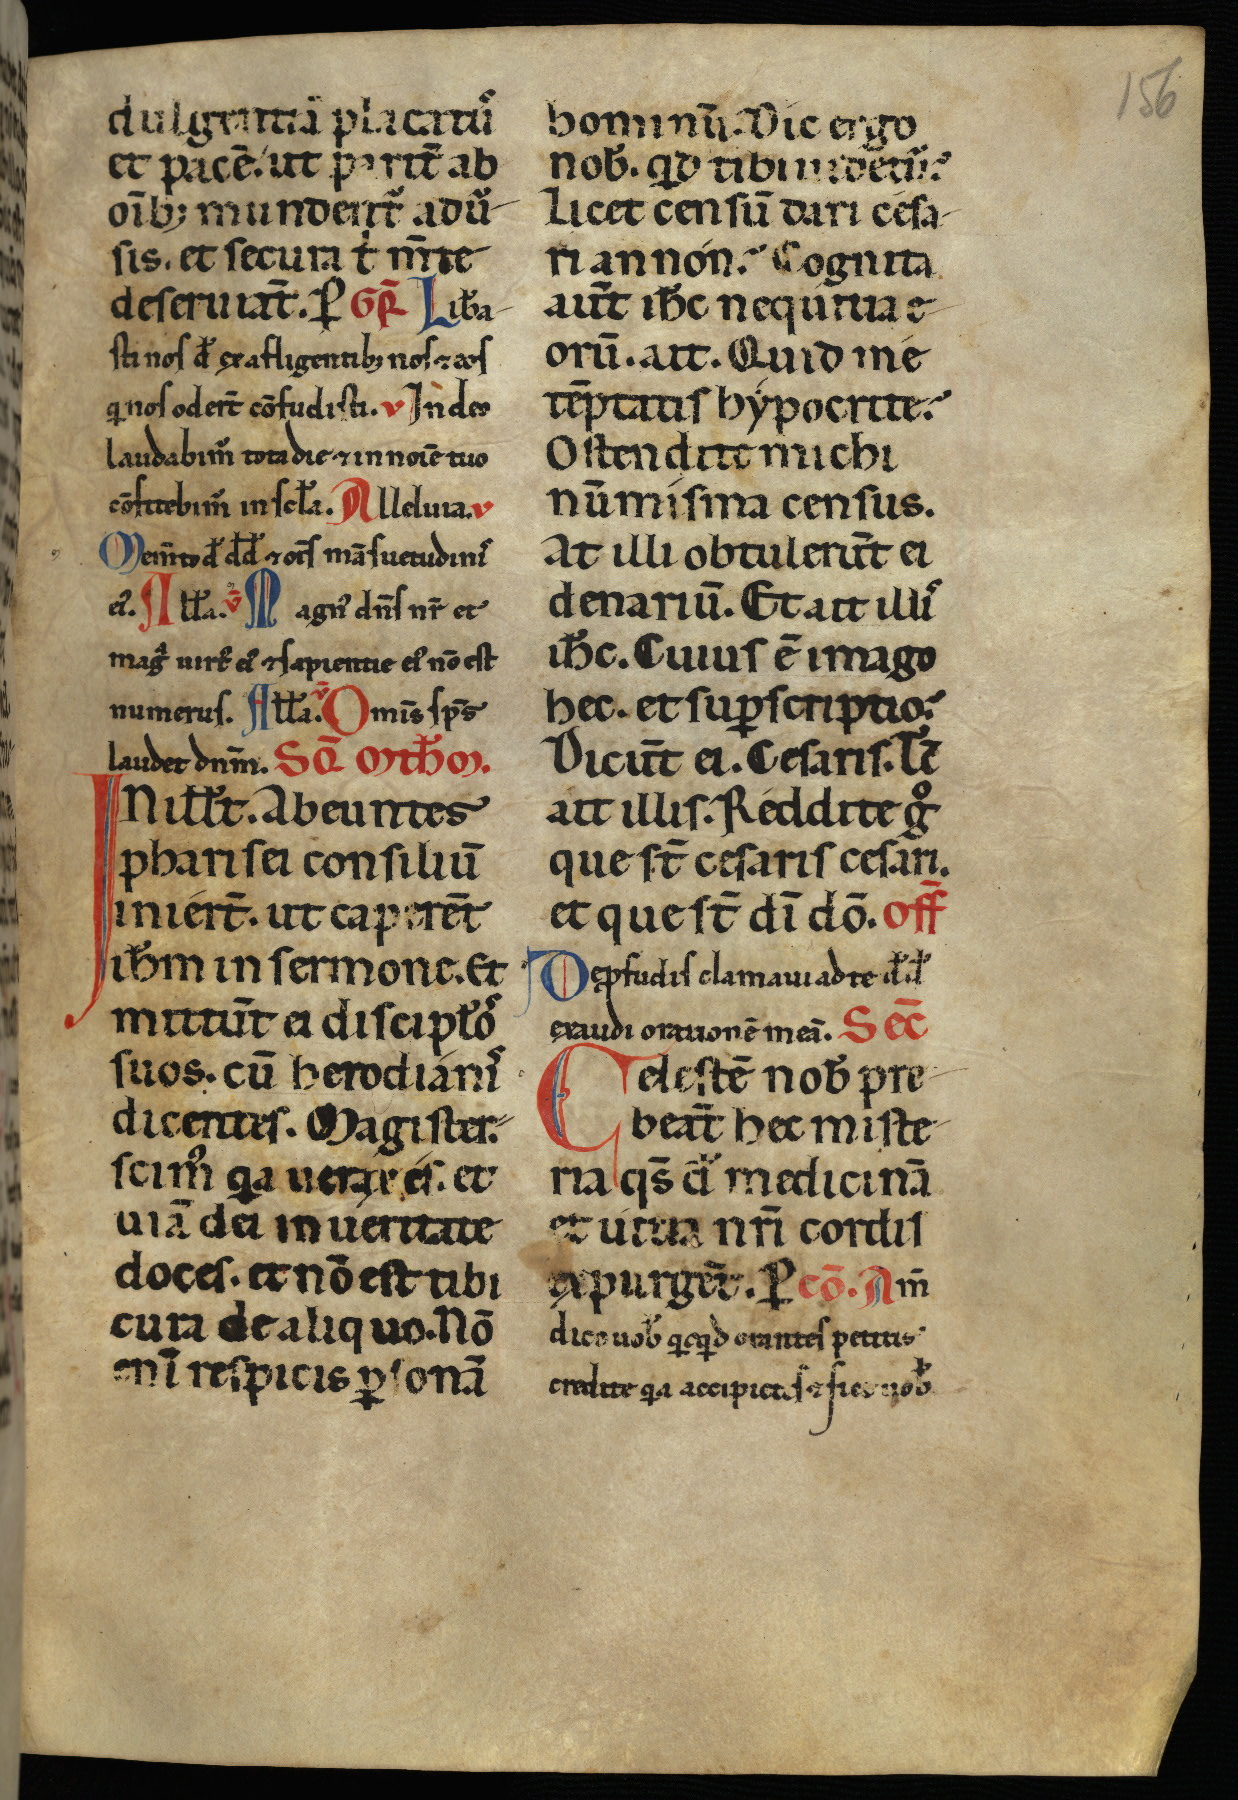 156
dulgentiā placatꝰ
et pacē. ut pariť ab
oīb; mundent̄ adū
sis. et secura t͛ m̄te
deseruiāt. P Gr̄ Liba
sti nos d̄s ex afligentib; nos ⁊ eos
q̇ nos odert̄ cōfudisti. v In deo
laudabim̄ tota die ⁊ in noīe tuo
cōfitebim̄ in scl̄a. Alleluia. v
Mem̄to d̄ dd̄ ⁊ oīs māsuetudinis
eꝰ. All̄a. v̄ Magnꝰ dn̄s nr̄ et
magͣ uirtꝰ eꝰ ⁊ sapientie eꝰ nō est
numerus. All̄a. v̄ Omīs sp̄s
laudet dnm̄. Sc̄d Mth̄m.
IN ill̄t. Abeuntes
pharisei consiliū
iniert̄. ut caperēt
ih̄m in sermone. Et
mittūt ei discipl̄os
suos. cū herodianis
dicentes. Magister.
scimꝰ qa uerax es. et
uiā dei in ueritate
doces. et nō est tibi
cura de aliquo. Nō
enī respicis ꝑsonā
hominū. Dic ergo
nob̄. qd tibi uidetꝰ.
Licet censū dari cesa-
ri an non. Cognita
aūt ih̄c nequitia e-
orū. ait. Quid me
tēptatis hypocrite.
Ostendite michi
nūmisma census.
At illi obtulerūt ei
denariū. Et ait illis
ih̄c. Cuius ē imago
hec. et suꝑscriptio.
Dicūt ei. Cesaris. Tc̄
ait illis. Reddite gͦ
que st̄ cesaris cesari.
et que st̄ dī dō. Off̄
De ꝓfūdis clamaui ad te d̄ d̄
exaudi orationē meā. Sec̄
Celestē nob̄ pre-
beāt hec miste-
ria qs̄ dn̄ medicinā
et uitia nr̄i cordis
expurgēt. P cō. Am̄
dico uob̄ qcqd orantes petitis
credite qa accipietis ⁊ fiet uob̄